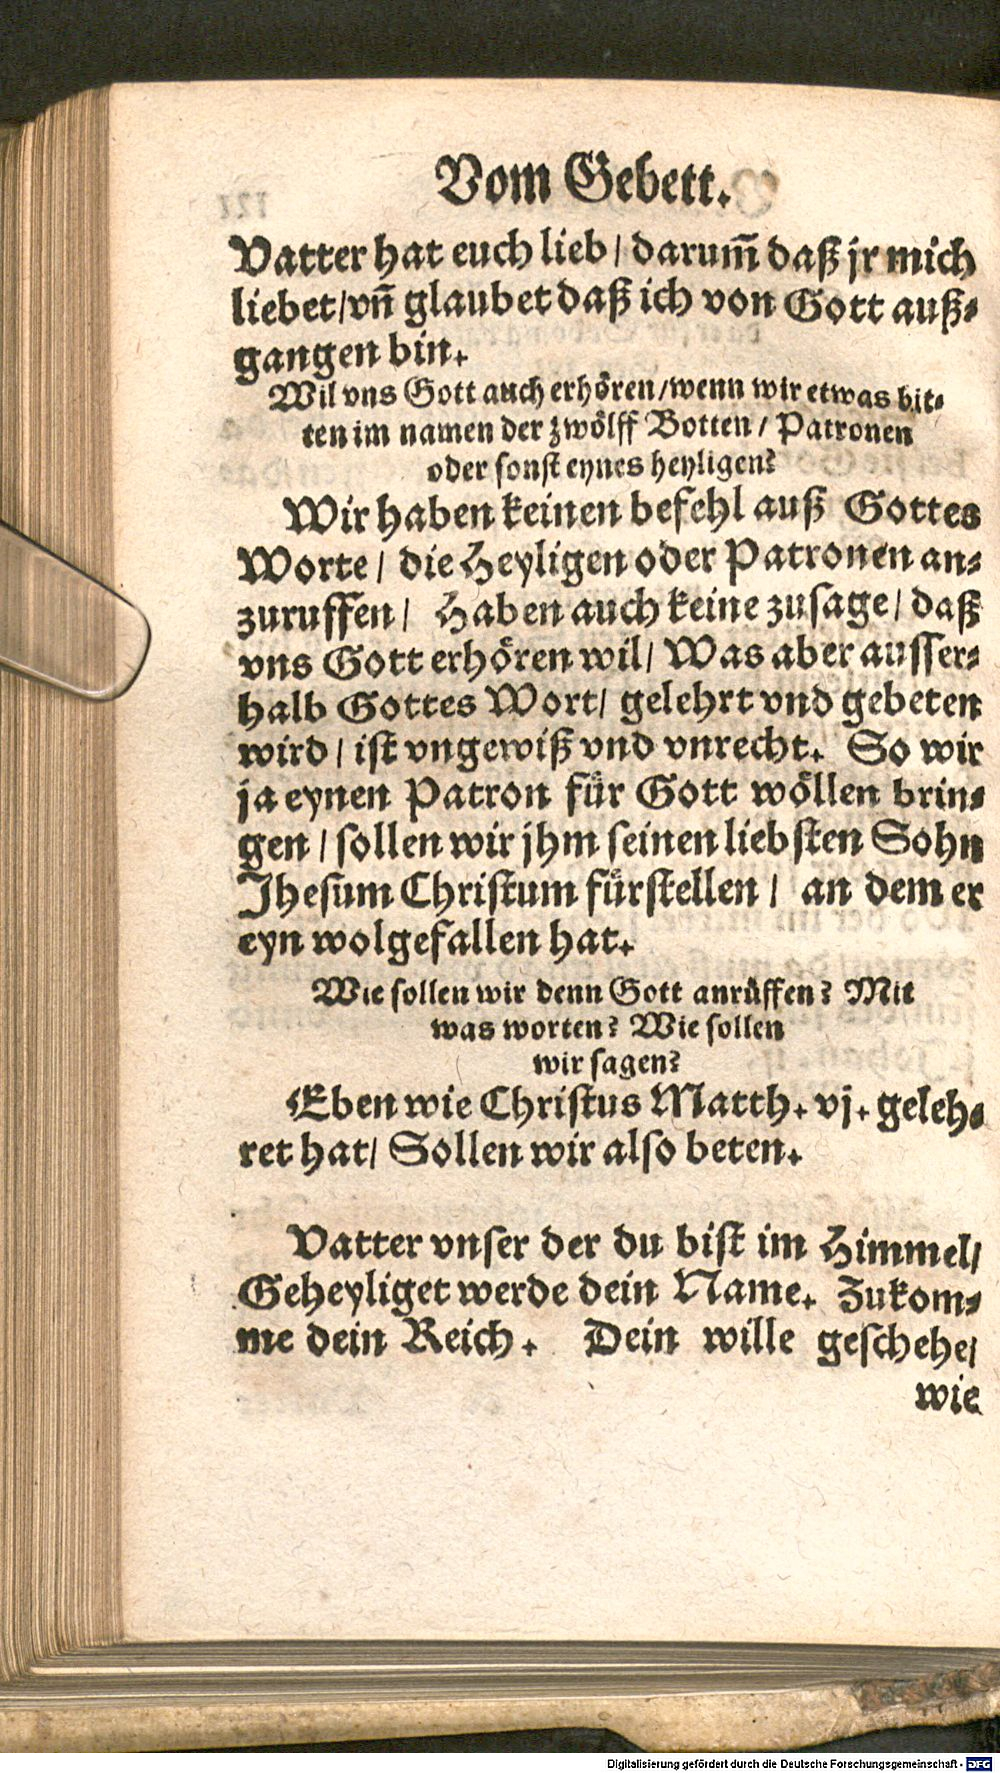 Vom Gebett.
Vatter hat euch lieb / darum̃ daß jr mich
liebet/vñ glaubet daß ich von Gott auß-
gangen bin.
Wil vns Gott auch erhören/wenn wir etwas bit-
ten im namen der zwölff Botten / Patronen
oder sonst eynes heyligen?
Wir haben keinen befehl auß Gottes
Worte / die Heyligen oder Patronen an-
zuruffen / Haben auch keine zusage / daß
vns Gott erhören wil / Was aber ausser-
halb Gottes Wort / gelehrt vnd gebeten
wird / ist vngewiß vnd vnrecht. So wir
ja eynen Patron fuͤr Gott woͤllen brin-
gen / sollen wir jhm seinen liebsten Sohn
Jhesum Christum fuͤrstellen / an dem er
eyn wolgefallen hat.
Wie sollen wir denn Gott anruͤffen? Mit
was worten? Wie sollen
wir sagen?
Eben wie Christus Matth. vj. geleh-
ret hat / Sollen wir also beten.
Vatter vnser der du bist im Himmel /
Geheyliget werde dein Name. Zukom-
me dein Reich. Dein wille geschehe /
wie
Digitalisierung gefördert durch die Deutsche Forschungsgemeinschaft - DFG